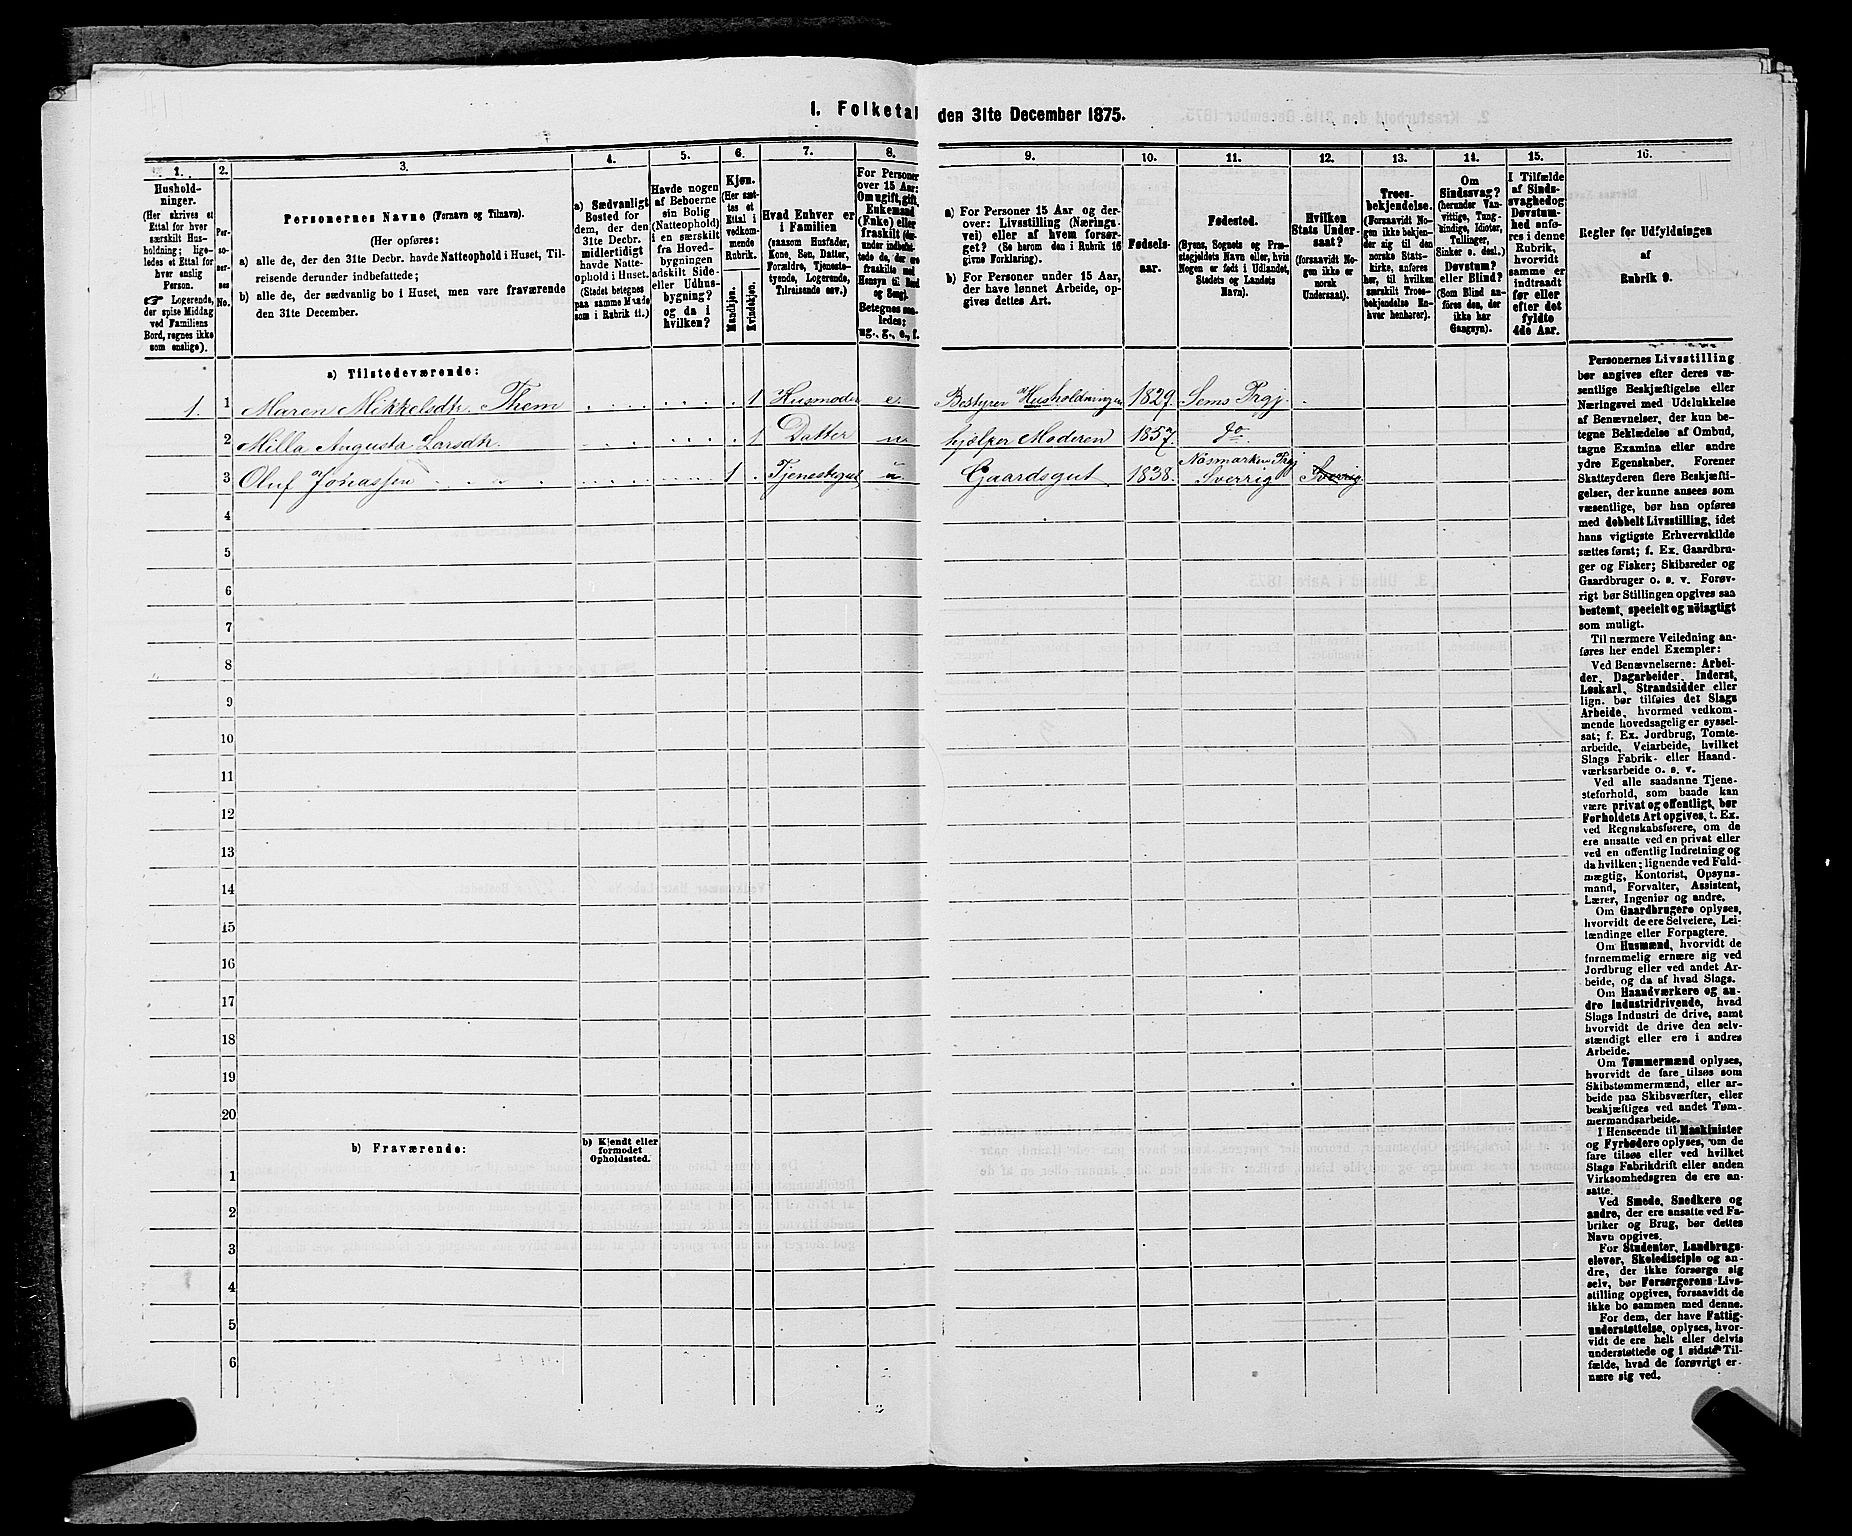 1. Folketal den 31te December 1875.
1. 2. 3. 4. 5. 6. 7. 8. 9. 10. 11. 12. 13. 14. 15. 16.
Hushold-
ninger.
(Her skrives et
Ettal for hver
særskilt Hus-
holdning; lige-
ledes et Ettal for
hver enslig
Person.
☞ Logerende,
der spise Middag
ved Familiens
Bord, regnes ikke
som enslige).
Per-
so-
ner-
nes
No.
Personernes Navne (Fornavn og Tilnavn).
(Her opføres:
a) alle de, der den 31te Decbr. havde Natteophold i Huset, Til-
reisende derunder indbefattede;
b) alle de, der sædvanlig bo i Huset, men vare fraværende
den 31te December.
a) Sædvanligt
Bosted for
dem, der den
31te Decbr.
midlertidigt
havde Natte-
ophold i Huset.
(Stedet betegnes
paa samme Maade
som i Rubrik 11.)
Havde nogen
af Beboerne
sin Bolig
(Natteophold)
i en særskilt
fra Hoved-
bygningen
adskilt Side-
eller Udhus-
bygning?
og da i
hvilken?
Kjøn.
(Her sæt-
tes et
Ettal i
vedkom-
mende
Rubrik.
Mandkjøn.
Kvindekjøn.
Hvad Enhver er
i Familien
(saasom Husfader,
Kone, Søn, Datter,
Forældre, Tjeneste-
tyende, Logerende,
Tilreisende osv.)
For Personer
over 15 Aar:
Om ugift, gift,
Enkemand
(Enke) eller
fraskilt (der-
under indbefat-
tede de, der ere
fraskilte med
Hensyn til Bord
og Seng).
Betegnes saa-
ledes:
ug., g., e., f.
a) For Personer 15 Aar og der-
over: Livsstilling (Nærings-
vei) eller af hvem forsør-
get? (Se herom den i Rubrik 16
givne Forklaring).
b) For Personer under 15 Aar,
der have lønnet Arbeide, op-
gives dettes Art.
Fødsels-
aar.
Fødested.
(Byens, Sognets og Præ-
stegjeldets Navn eller, hvis
Nogen er født i Udlandet,
Stedets og Landets
Navn).
Hvilken
Stats Under-
saat?
(forsaavidt No-
gen ikke er
norsk
Undersaat).
Troes-
bekjendelse.
(Forsaavidt No-
gen ikke bekjen-
der sig til den
norske Stats-
kirke, anføres
her, til hvilken
særskilt Troes-
bekjendelse En-
hver henhører).
Om
Sindssvag?
(herunder Van-
vittige, Tung-
sindige, Idioter,
Tullinger,
Sinker o. desl.)
Døvstum?
eller Blind?
(Som Blind an-
føres den, der
ikke har
Gangsyn).
I Tilfælde
af Sinds-
svaghed og
Døvstum-
hed anfø-
res i denne
Rubrik,
hvorvidt
samme er
indtraadt
før eller
efter det
fyldte
4de Aar.
Regler for Udfyldningen
af
Rubrik 9.
a) Tilstedeværende:
1. 1 Maren Mikkelsdtr. Them 1 Husmoder e. Bestyrer Husholdningen 1829. Sems Prgj.
2 Milla Augusta Larsdtr. 1 Datter u. hjælper Moderen 1857. do.
3 Oluf Jonassen 1 Tjenestegut u. Gaardsgut 1838. Nosmarken Prgj Sverrig Sverrig
4
5
6
7
8
9
10
11
12
13
14
15
16
17
18
19
20
b) Fraværende:
b) Kjendt eller
formodet
Opholdssted.
1
2
3
4
5
6
Personernes Livsstilling
bør angives efter deres væ-
sentlige Beskjæftigelse eller
Næringsvei med Udelukkelse
af Benævnelser, der kun be-
tegne Beklædelse af Ombud,
tagne Examina eller andre
ydre Egenskaber. Forener
Skatteyderen flere Beskjæfti-
gelser, der kunne ansees som
væsentlige, bør han opføres
med dobbelt Livsstilling, idet
hans vigtigste Erhvervskilde
sættes først; f. Ex. Gaardbru-
ger og Fisker; Skibsreder og
Gaardbruger o. s. v. Forøv-
rigt bør Stillingen opgives saa
bestemt, specielt og nöiagtigt
som muligt.
Til nærmere Veiledning an-
føres her endel Exempler:
Ved Benævnelserne: Arbei-
der, Dagarbeider, Inderst,
Løskarl, Strandsidder eller
lign. bør tilføies det Slags
Arbeide, hvormed vedkom-
mende hovedsagelig er syssel-
sat; f. Ex. Jordbrug, Tomte-
arbeide, Veiarbeide, hvilket
Slags Fabrik- eller Haand-
værksarbeide o. s. v.
Ved alle saadanne Tjene-
steforhold, som baade kan
være privat og offentligt, bør
Forholdets Art opgives, t. Ex.
ved Regnskabsførere, om de
ere ansatte ved en privat eller
ved en offentlig Indretning og
da hvilken; lignende ved Fuld-
mægtig, Kontorist, Opsyns-
mand, Forvalter, Assistent,
Lærer, Ingeniør og andre.
Om Gaardbrugere oplyses,
hvorvidt de ere Selveiere, Lei-
lændinge eller Forpagtere.
Om Husmænd, hvorvidt de
fornemmelig ernære sig ved
Jordbrug eller ved andet Ar-
beide, og da af hvad Slags.
Om Haandværkere og an-
dre Industridrivende, hvad
Slags Industri de drive, samt
hvorvidt de drive den selv-
stændigt eller ere i andres
Arbeide.
Om Tømmermænd oplyses,
hvorvidt de fare tilsøs som
Skibstømmermænd, eller ar-
beide paa Skibsværfter, eller
beskjæftiges ved andet Tøm-
mermandsarbeide.
I Henseende til Maskinister
og Fyrbødere oplyses, om de
fare tilsøs eller ved hvilket
Slags Fabrikdrift eller anden
Virksomhedsgren de ere an-
satte.
Ved Smede, Snedkere og
andre, der ere ansatte ved Fa-
briker og Brug, bør dettes
Navn opgives.
For Studenter, Landbrugs-
elever, Skoledisciple og an-
dre, der ikke forsørge sig
selv, bør Forsørgerens Livs-
stilling opgives, forsaavidt de
ikke bo sammen med denne.
For dem, der have Fattig-
understøttelse, oplyses, hvor-
vidt de ere helt eller delvis
understøttede og i sidste Til-
fælde, hvad de forøvrigt er-
nære sig ved.